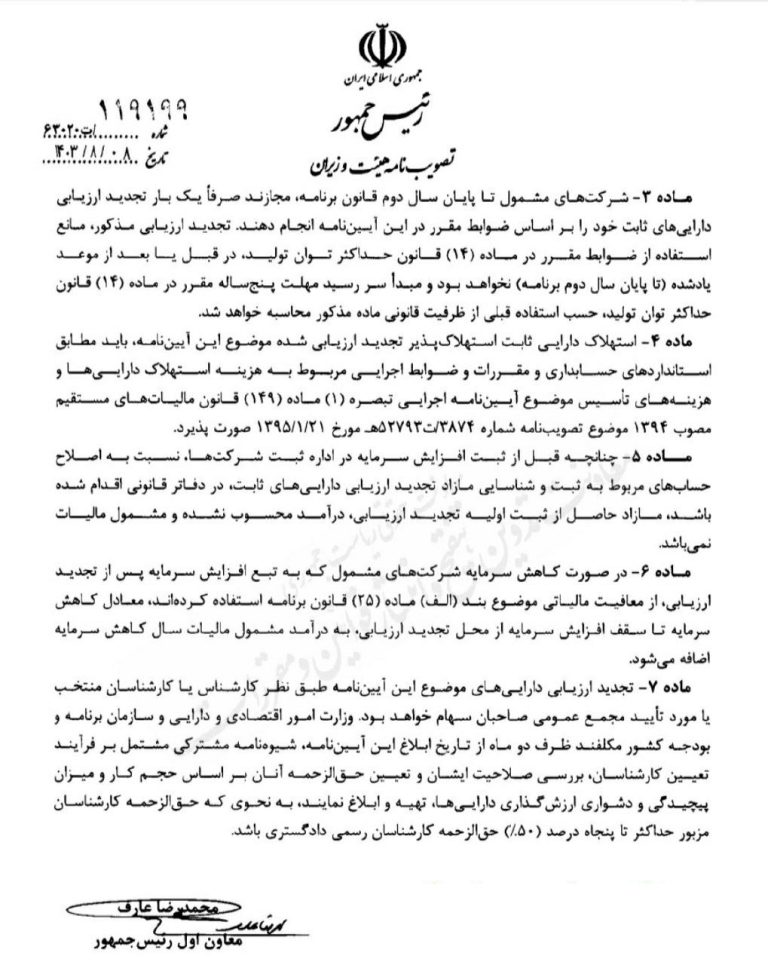 جمهوری اسلامی ایران
رئیس جمهور
تصویب نامه هیئت وزیران
شماره ۱۱۹۱۹۹/ت۶۳۰۲۰
تاریخ ۱۴۰۳/۸/۰۸
ماده ۳- شرکت‌های مشمول تا پایان سال دوم قانون برنامه، مجازند صرفاً یک بار تجدید ارزیابی
دارایی‌های ثابت خود را بر اساس ضوابط مقرر در این آیین‌نامه انجام دهند. تجدید ارزیابی مذکور، مانع
استفاده از ضوابط مقرر در ماده (۱۴) قانون حداکثر توان تولید، در قبل یا بعد از موعد
یادشده (تا پایان سال دوم برنامه) نخواهد بود و مبدأ سر رسید مهلت پنج‌ساله مقرر در ماده (۱۴) قانون
حداکثر توان تولید، حسب استفاده قبلی از ظرفیت قانونی ماده مذکور محاسبه خواهد شد.
ماده ۴- استهلاک دارایی ثابت استهلاک‌پذیر تجدید ارزیابی شده موضوع این آیین‌نامه، باید مطابق
استانداردهای حسابداری و مقررات و ضوابط اجرایی مربوط به هزینه استهلاک دارایی‌ها و
هزینه‌های تأسیس موضوع آیین‌نامه اجرایی تبصره (۱) ماده (۱۴۹) قانون مالیات‌های مستقیم
مصوب ۱۳۹۴ موضوع تصویب‌نامه شماره ۳۸۷۴/ت۵۲۷۹۳هـ مورخ ۱۳۹۵/۱/۲۱ صورت پذیرد.
ماده ۵- چنانچه قبل از ثبت افزایش سرمایه در اداره ثبت شرکت‌ها، نسبت به اصلاح
حساب‌های مربوط به ثبت و شناسایی مازاد تجدید ارزیابی دارایی‌های ثابت، در دفاتر قانونی اقدام شده
باشد، مازاد حاصل از ثبت اولیه تجدید ارزیابی، درآمد محسوب نشده و مشمول مالیات
نمی‌باشد.
ماده ۶- در صورت کاهش سرمایه شرکت‌های مشمول که به تبع افزایش سرمایه پس از تجدید
ارزیابی، از معافیت مالیاتی موضوع بند (الف) ماده (۲۵) قانون برنامه استفاده کرده‌اند، معادل کاهش
سرمایه تا سقف افزایش سرمایه از محل تجدید ارزیابی، به درآمد مشمول مالیات سال کاهش سرمایه
اضافه می‌شود.
ماده ۷- تجدید ارزیابی دارایی‌های موضوع این آیین‌نامه طبق نظر کارشناس یا کارشناسان منتخب
یا مورد تأیید مجمع عمومی صاحبان سهام خواهد بود. وزارت امور اقتصادی و دارایی و سازمان برنامه و
بودجه کشور مکلفند ظرف دو ماه از تاریخ ابلاغ این آیین‌نامه، شیوه‌نامه مشترکی مشتمل بر فرآیند
تعیین کارشناسان، بررسی صلاحیت ایشان و تعیین حق‌الزحمه آنان بر اساس حجم کار و میزان
پیچیدگی و دشواری ارزش‌گذاری دارایی‌ها، تهیه و ابلاغ نمایند، به نحوی که حق‌الزحمه کارشناسان
مزبور حداکثر تا پنجاه درصد (۵۰٪) حق‌الزحمه کارشناسان رسمی دادگستری باشد.
محمدرضا عارف
معاون اول رئیس‌جمهور